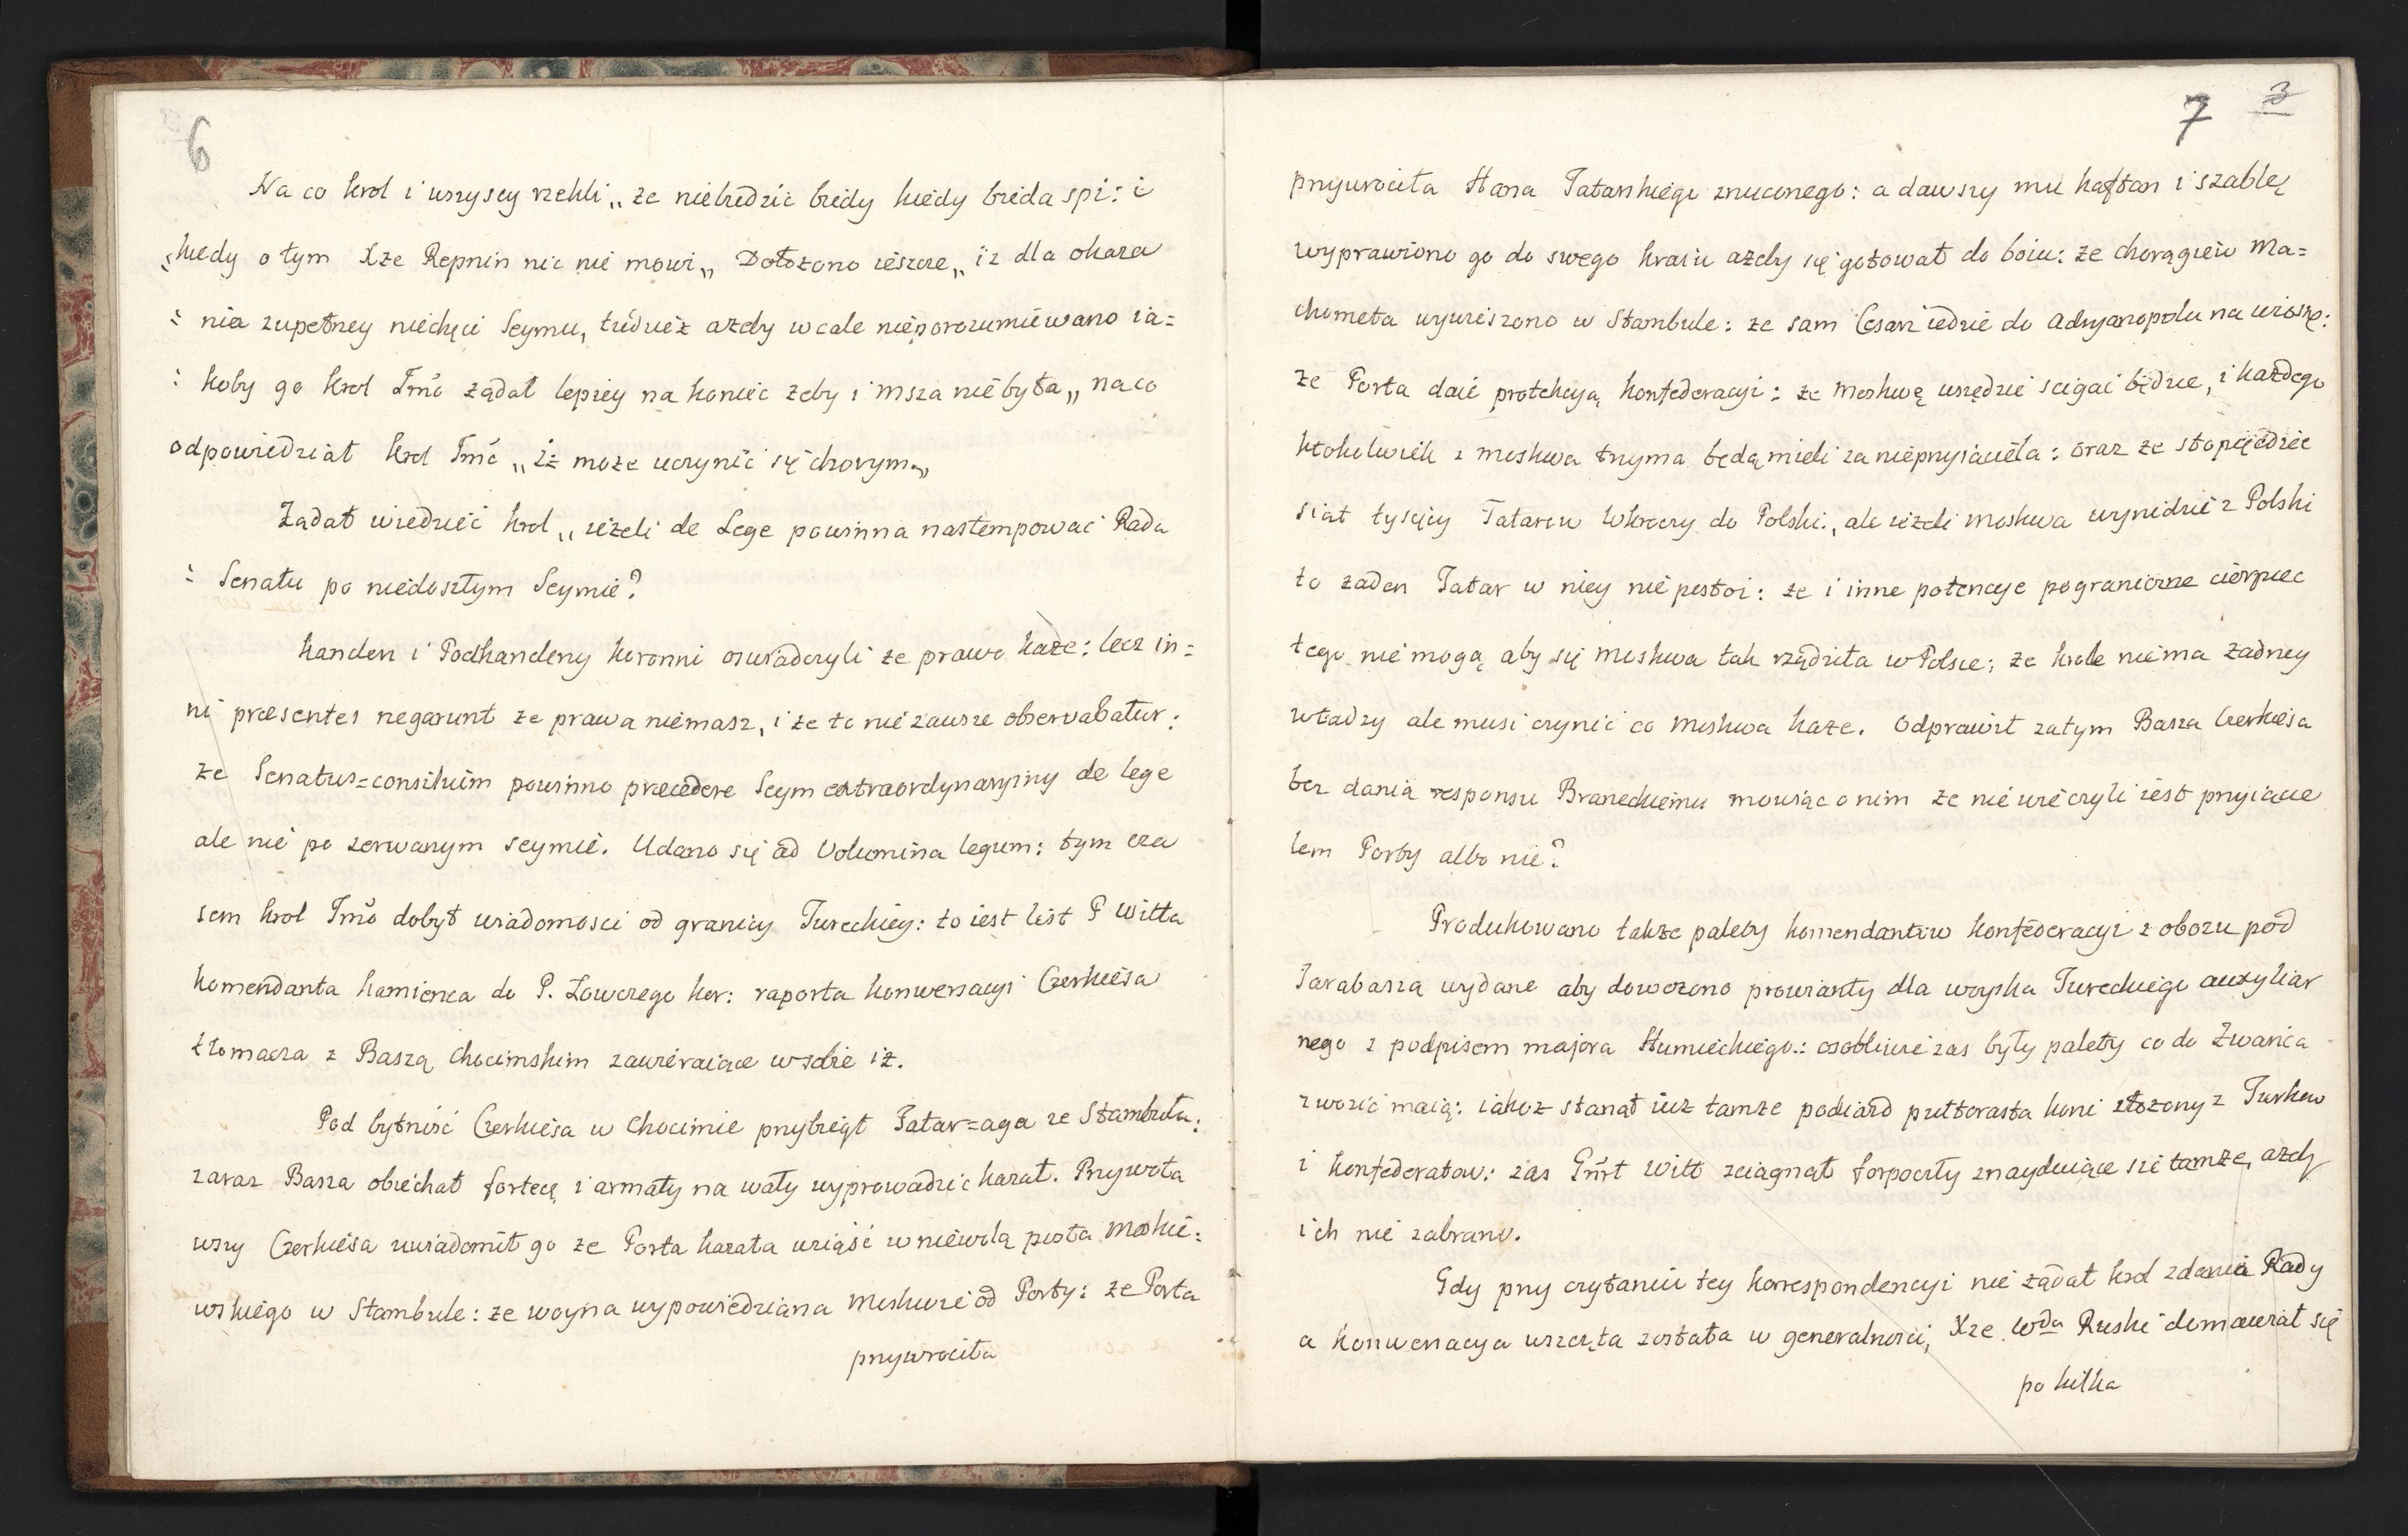 6
Na co Krol i wszyscy rzekli „ze niebudzić biédy kiédy biéda spi: i
„kiedy o tym Xże Repnin nic nié mowi„ Dołożono ieszcze„ iż dla okaza
: nia zupełney niechęci Seymu, tudziéż ażeby wcale niéporozumiéwano ia=
: koby go Krol Jmć żądał lepiey na koniéc żeby i msza niébyła„ na co
odpowiedział Krol Jmć „iż może uczynić się chorym„
Żądał wiedziéć Krol „ieżeli de Lege powinna nastempować Rada
: Senatu po niedoszłym Seymié?
Kanclerz i Podkanclerzy Koronni oswiadczyli że prawo każe: lecz in=
ni præsentes negarunt że prawa niémasz, i że to nié zawsze observabatur:
że Senatus=consilium powinno præcedere Seym extraordynaryiny de lege
ale nié po zerwanym seymié. Udano się ad Volumina legum: tym cza
sem Krol Jmć dobył wiadomosci od granicy Tureckiéy: to iest list P Witta
komendanta Kamienca do P. Łowczego Kor: raporta konwersacyi Czerkiésa
tłomacza z Baszą Chocimskim zawiéraiące w sobie iż.
Pod bytność Czerkiesa w Chocimie przybiegł Tatar=aga ze Stambułu:
zaraz Basza obiéchał fortecę i armaty na wały wyprowadzić kazał. Przywoła
wszy Czerkiésa uwiadomił go że Porta kazała wziąść w niéwolą posła Moskié=
wskiégo w Stambule: że woyna wypowiédziana Moskwié od Porty: że Porta
przywrociła
7 3
przywrociła Hana Tatarskiégo zrzuconego: a dawszy mu kaftan i szablę
wyprawiono go do swego kraiu ażeby się gotował do boiu: że chorągiéw Ma=
chometa wywieszono w Stambule: że sam Cesarz iedzie do Adryanopolu na wiosnę:
że Porta daié protekcyą Konfederacyi: że Moskwę wszędzié scigać będzie, i każdego
ktokolwiék z Moskwą trzyma będą mieli za niéprzyiaciéla: oraz że stopięćdzie
siąt tysięcy Tatarow wkroczy do Polski:, ale iéżeli Moskwa wynidzié z Polski
to żaden Tatar w niey nié postoi: że i inne potencye pograniczne ciérpiec
tego nié mogą aby się Moskwa tak rządziła w Polsce: że Krol niéma żadney
władzy ale musi czynić co Moskwa każe. Odprawił zatym Basza Czerkiésa
bez dania responsu Braneckiému mowiąc o nim że nié wié czyli iést przyiacie
lem Porty albo nié?
Produkowano także palety komendantow Konféderacyi z obozu pod
Jarabasza wydane aby dowożono prowianty dla woyska Tureckiégo auxyliar
nego z podpisem majora Humieckiégo.: osobliwié zas były palety co do Żwańca
zwozić maią: iakoż stanął iuż tamże podiazd pułtorasta koni złożony z Turkow
i Konfederatow: zas Gnrł Witt sciągnął forpoczty znayduiące się tamże, ażeby
ich nié zabrano.
Gdy przy czytaniu tey korrespondencyi nié żądał Krol zdania Rady
a konwersacya wszczęta została w generalnosci, Xże Wda Ruski domawiał się
po kilka